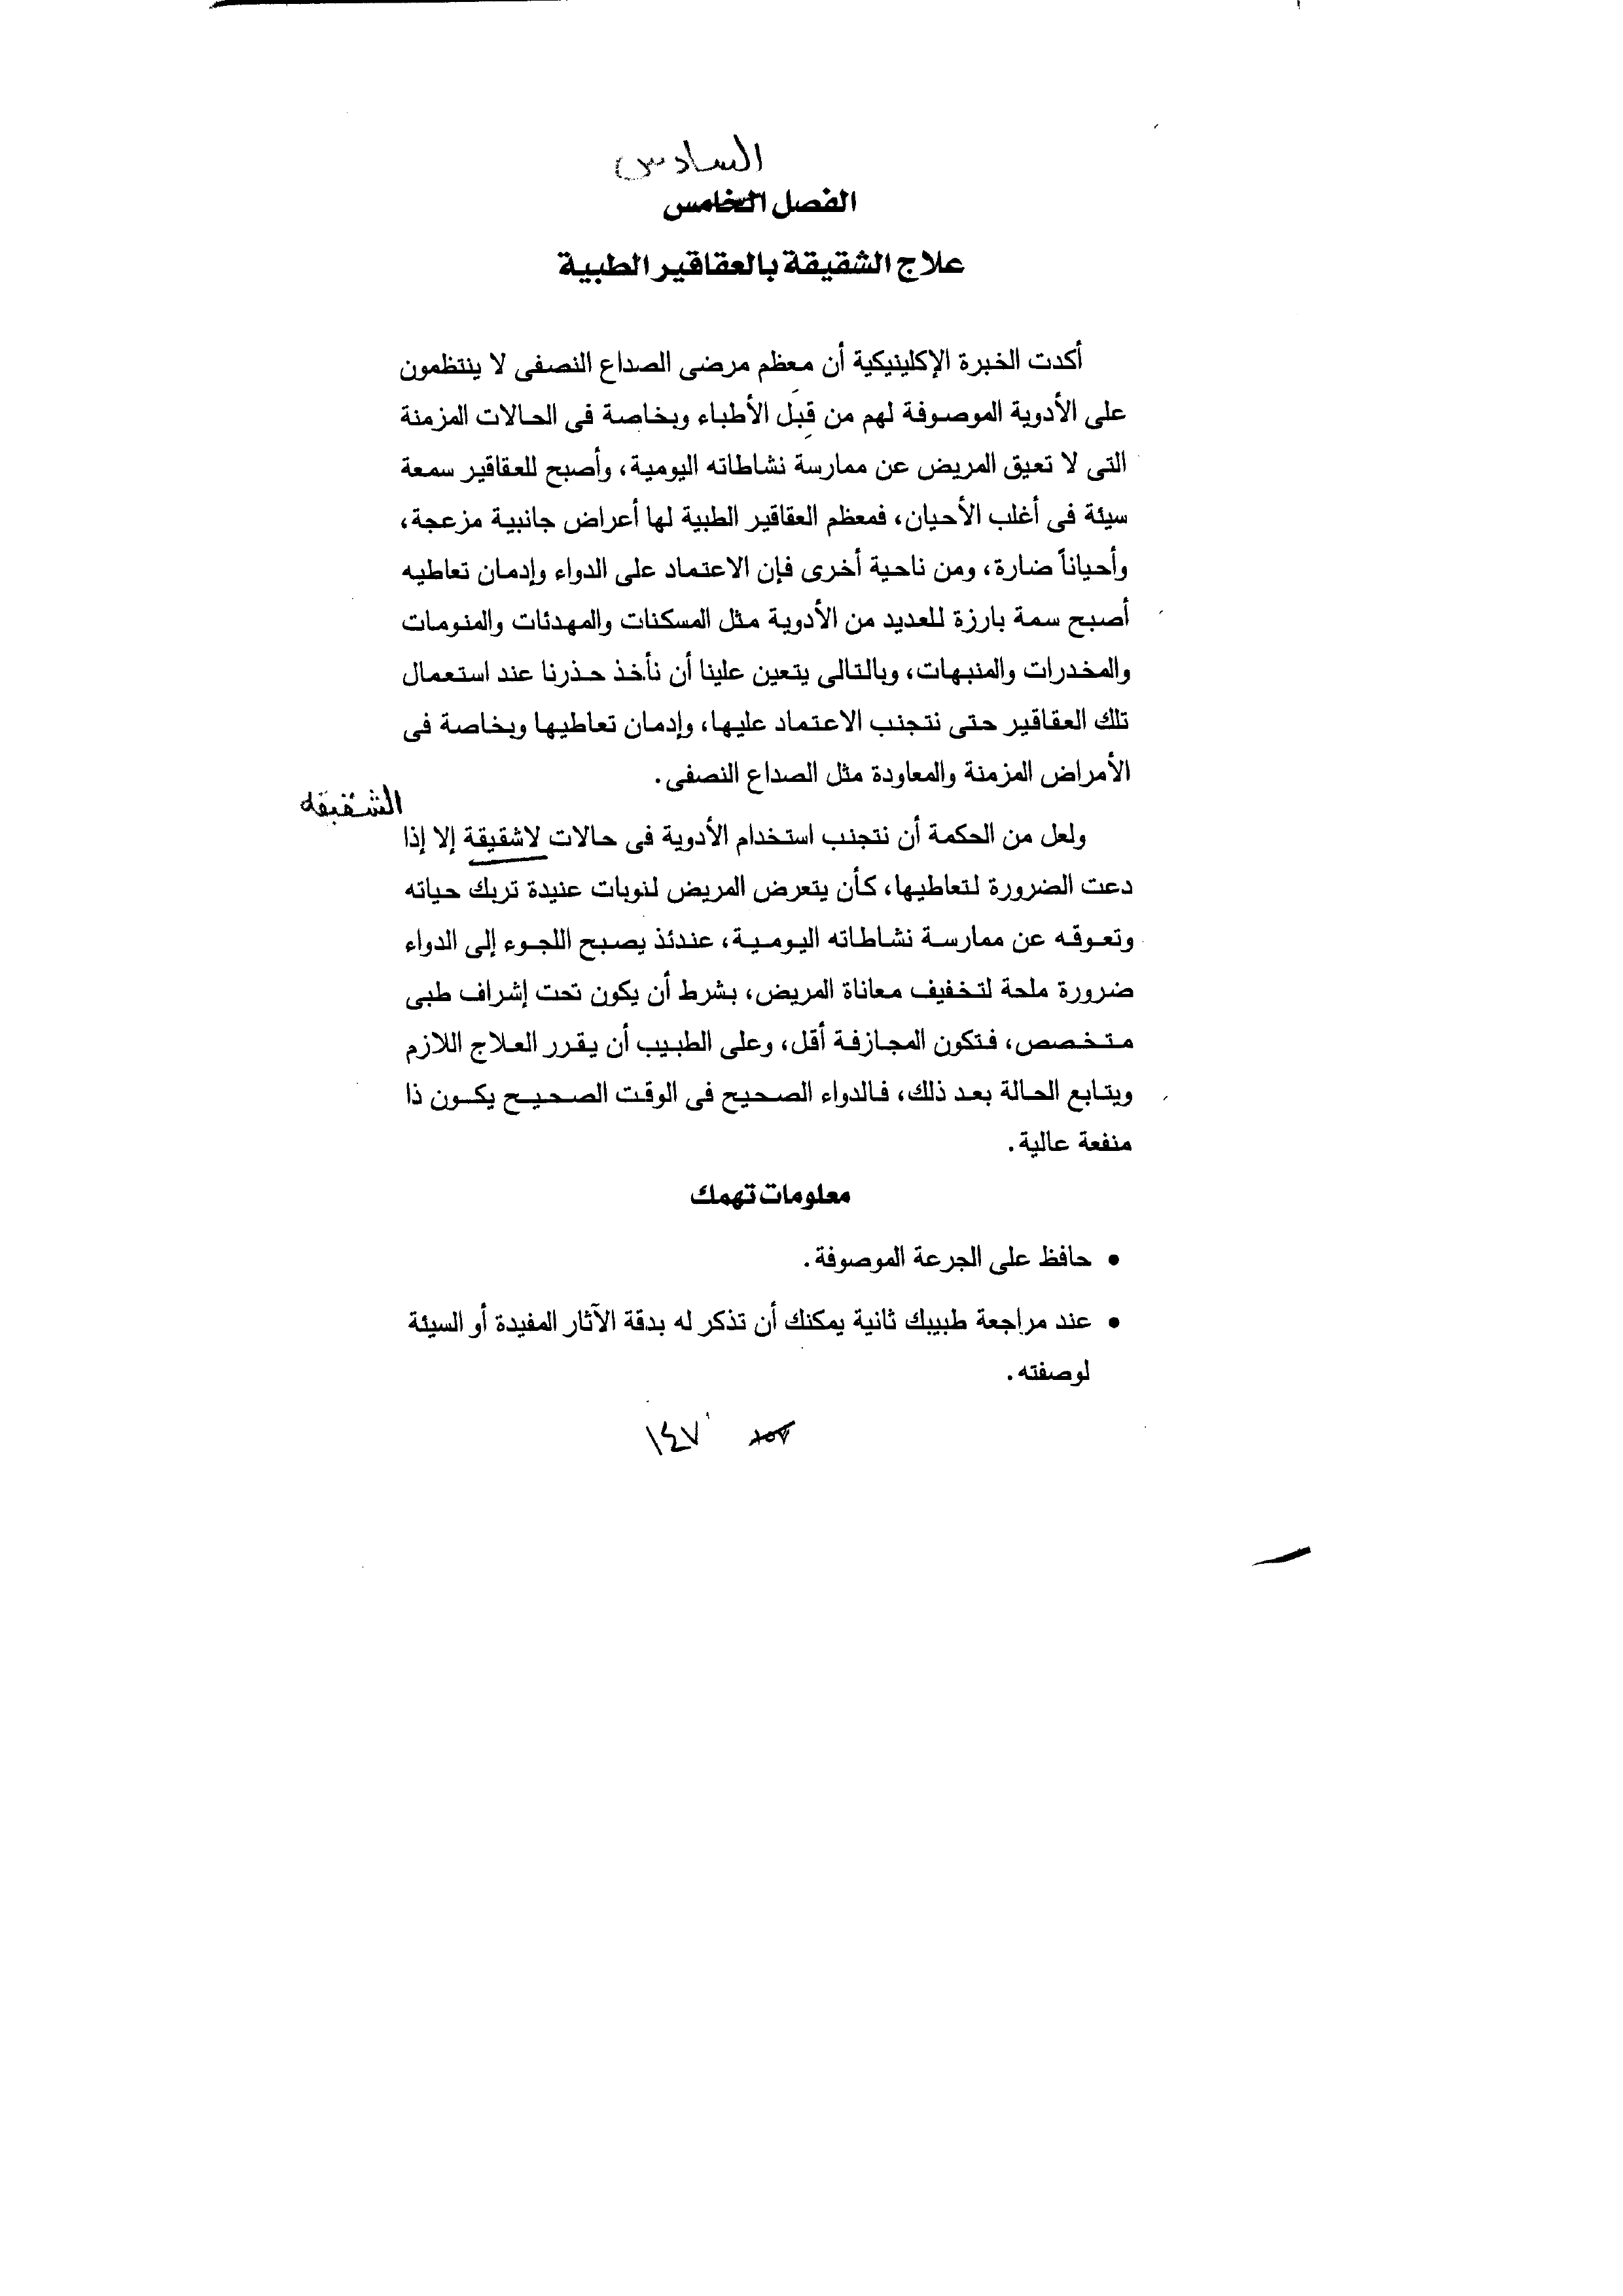 السادس
الفصل الخامس
علاج الشقيقة بالعقاقير الطبية
أكدت الخبرة الإكلينيكية أن معظم مرضى الصداع النصفى لا ينتظمون
على الأدوية الموصوفة لهم من قِبَل الأطباء وبخاصة فى الحالات المزمنة
التى لا تعيق المريض عن ممارسة نشاطاته اليومية، وأصبح للعقاقير سمعة
سيئة فى أغلب الأحيان، فمعظم العقاقير الطبية لها أعراض جانبية مزعجة،
وأحياناً ضارة، ومن ناحية أخرى فإن الاعتماد على الدواء وإدمان تعاطيه
أصبح سمة بارزة للعديد من الأدوية مثل المسكنات والمهدئات والمنومات
والمخدرات والمنبهات، وبالتالى يتعين علينا أن نأخذ حذرنا عند استعمال
تلك العقاقير حتى نتجنب الاعتماد عليها، وإدمان تعاطيها وبخاصة فى
الأمراض المزمنة والمعاودة مثل الصداع النصفى.
الشقيقه
ولعل من الحكمة أن نتجنب استخدام الأدوية فى حالات لاشقيقة إلا إذا
دعت الضرورة لتعاطيها، كأن يتعرض المريض لنوبات عنيدة تربك حياته
وتعوقه عن ممارسة نشاطاته اليومية، عندئذ يصبح اللجوء إلى الدواء
ضرورة ملحة لتخفيف معاناة المريض، بشرط أن يكون تحت إشراف طبى
متخصص، فتكون المجازفة أقل، وعلى الطبيب أن يقرر العلاج اللازم
ويتابع الحالة بعد ذلك، فالدواء الصحيح فى الوقت الصحيح يكون ذا
منفعة عالية.
معلومات تهمك
• حافظ على الجرعة الموصوفة.
• عند مراجعة طبيبك ثانية يمكنك أن تذكر له بدقة الآثار المفيدة أو السيئة
لوصفته.
١٤٧